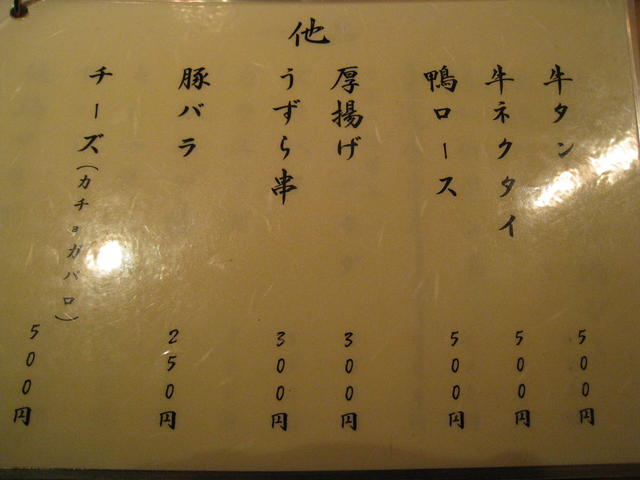 他
牛タン 500円
牛ネクタイ 500円
鴨ロース 500円
厚揚げ 300円
うずら串 300円
豚バラ 250円
チーズ(カチョガバロ) 500円